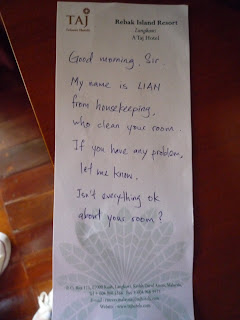 TAJ
Rebak Island Resort
Langkawi
A Taj Hotel
Good morning Sir
My name is LIAN
from housekeeping,
who clean your room.
If you have any problem,
let me know.
Isn't everything ok
about your room?